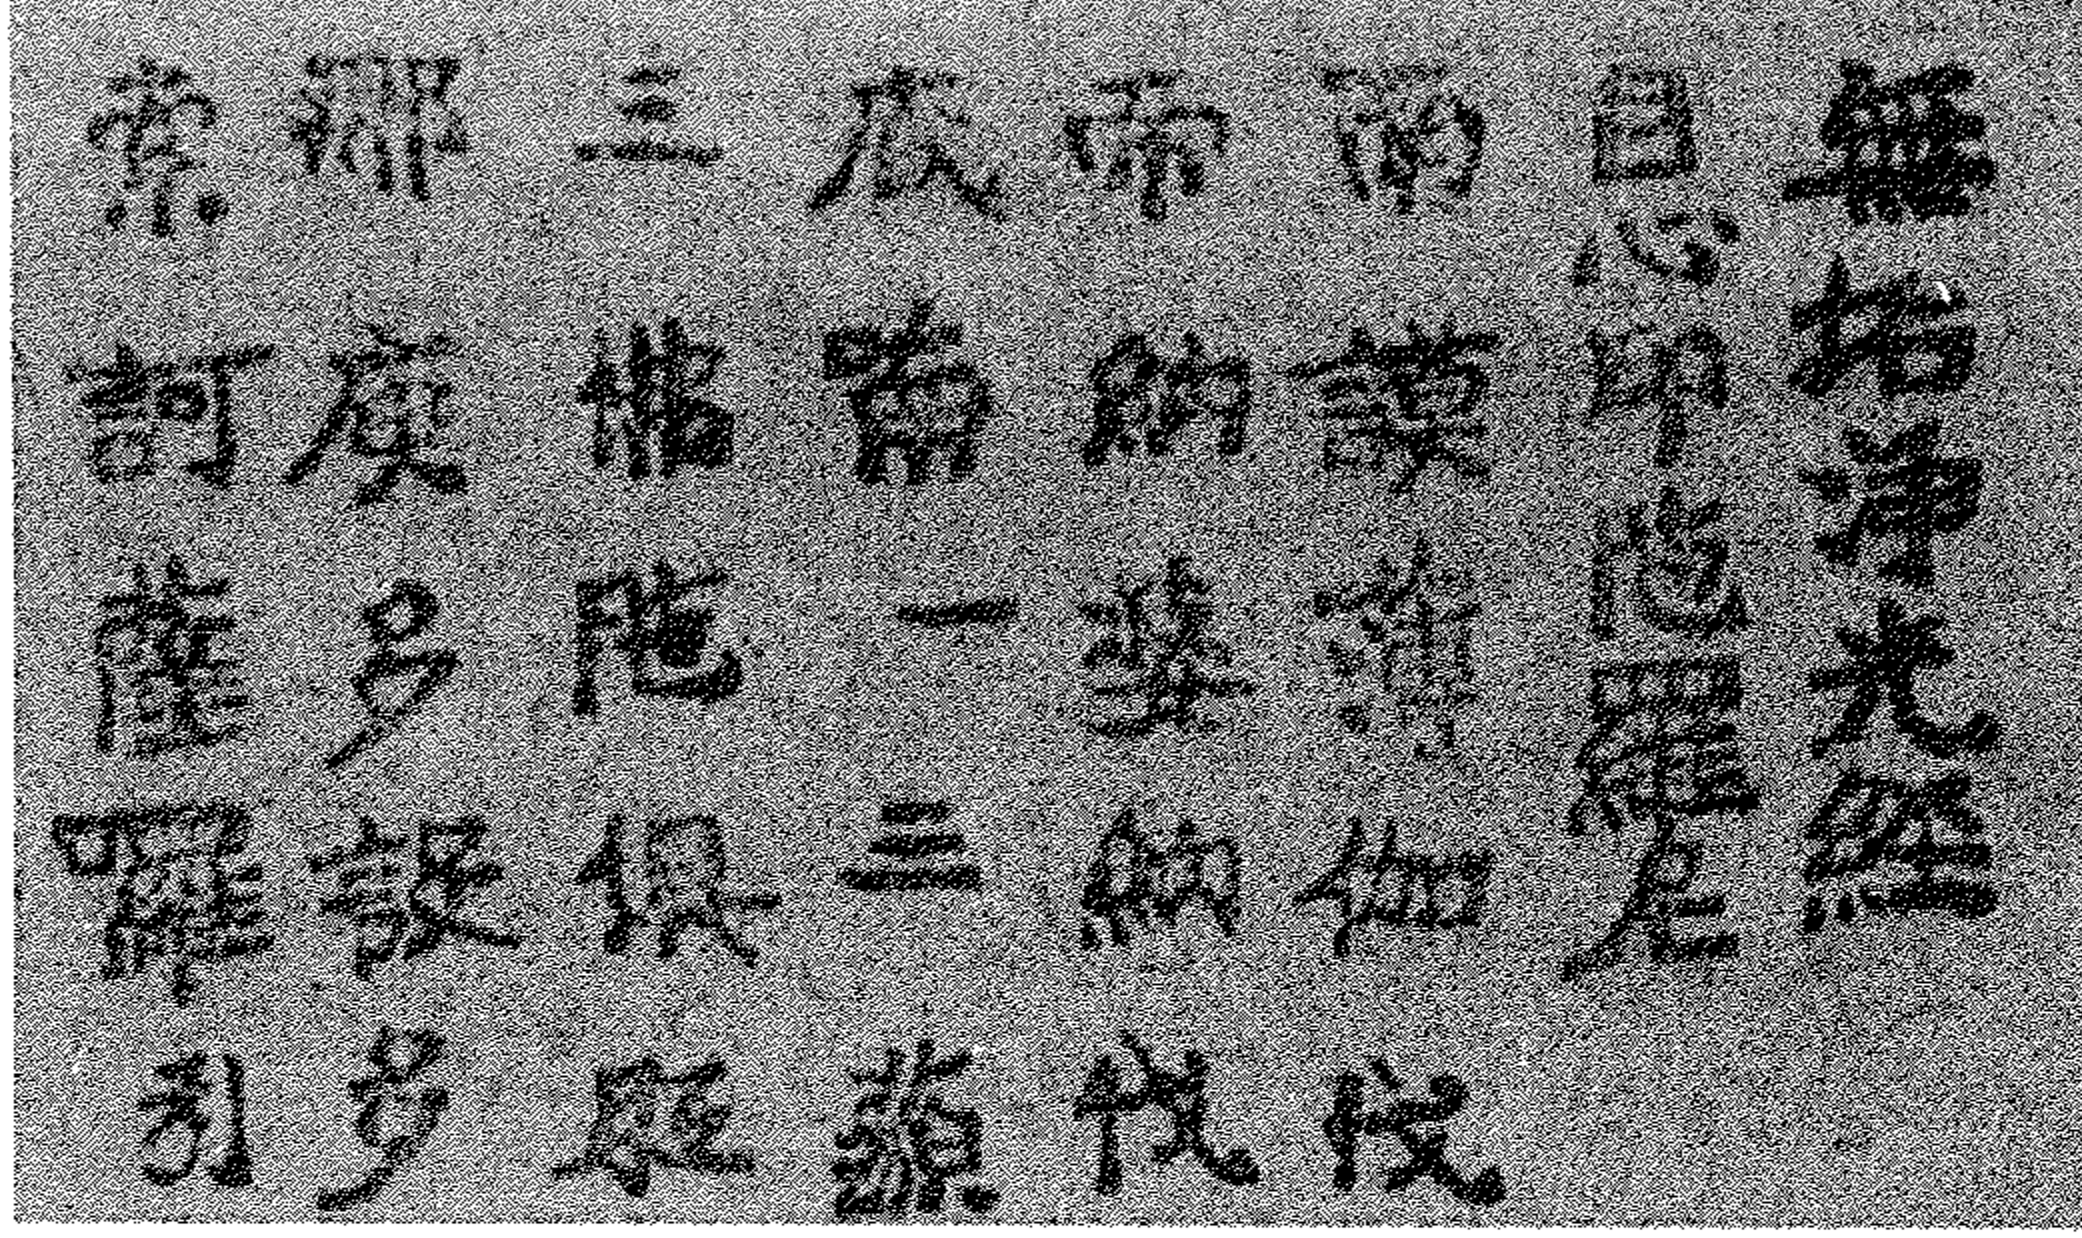 無垢淨光經
自心印陁羅尼
南謨薄伽伐
帝納婆納伐
底喃一三藐
三陁俱胝
那庾多設多
索訶薩囉引